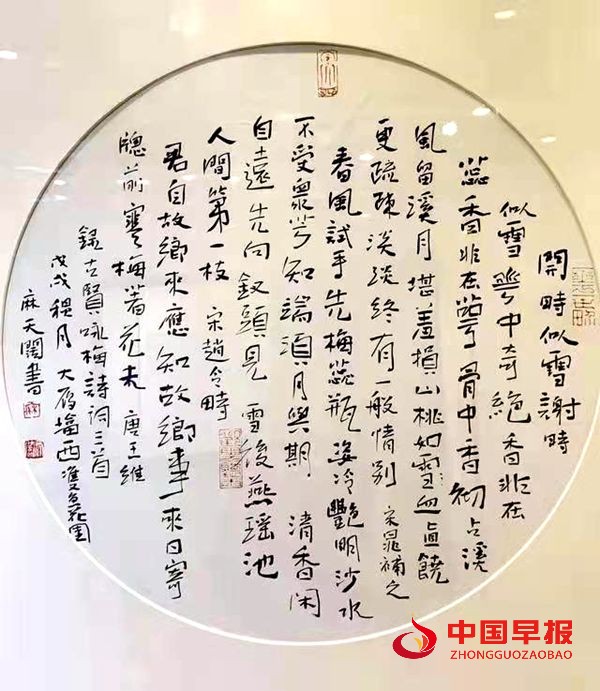 開時似雪謝時
似雪花中奇絕香非在
蕊香非在萼骨中香徹占溪
風留溪月堪羞損山桃如雪血直饒
更疏疎淡淡終有一般情別 宋晁補之
春風試手先梅蕊瓶姿冷艷明沙水
不受眾芳知端須月與期 清香閑
自遠先向釵頭見 雪後燕瑤池
人間第一枝 宋趙令畤
君自故鄉來應知故鄉事來日寄
牕前寒梅著花未 唐王維
錄古賢咏梅詩詞三首
戊戌稷月大雁塔西花園
麻天闊書
中国早报
ZHONGGUOZAOBAO